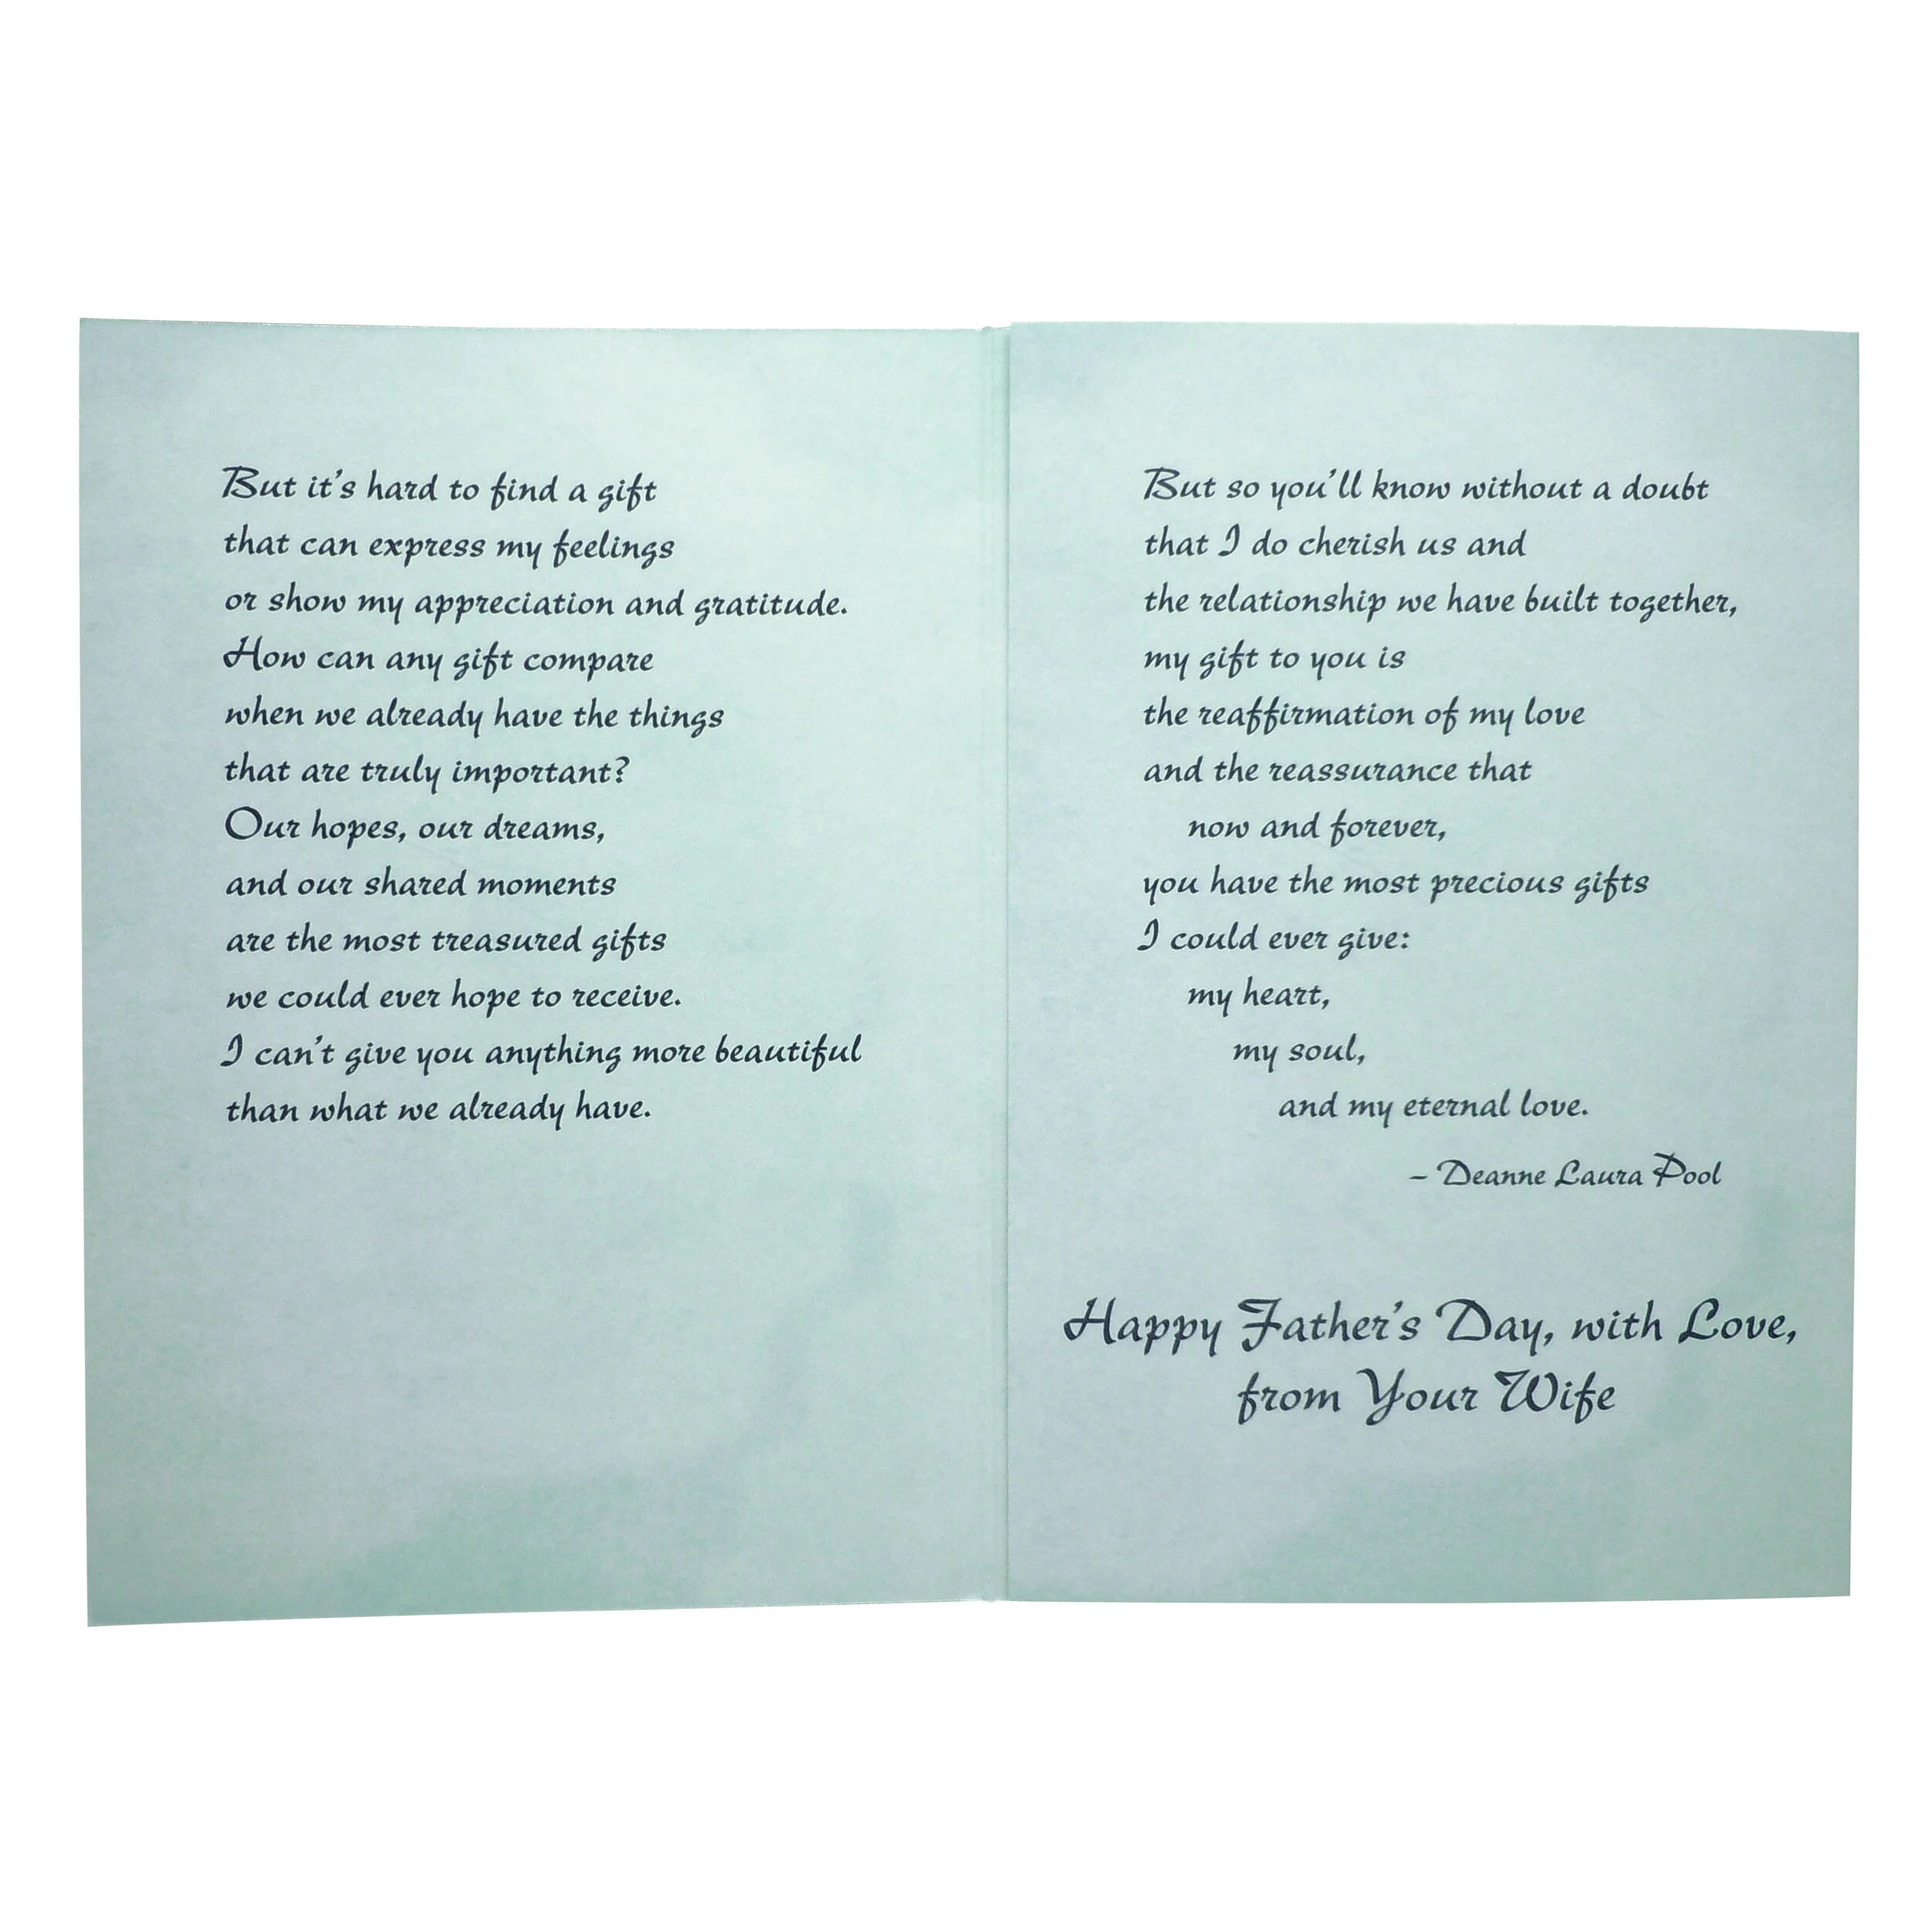 But it's hard to find a gift
that can express my feelings
or show my appreciation and gratitude.
How can any gift compare
when we already have the things
that are truly important?
Our hopes, our dreams,
and our shared moments
are the most treasured gifts
we could ever hope to receive.
I can't give you anything more beautiful
than what we already have.
But so you'll know without a doubt
that I do cherish us and
the relationship we have built together,
my gift to you is
the reaffirmation of my love
and the reassurance that
now and forever,
you have the most precious gifts
I could ever give:
my heart,
my soul,
and my eternal love.
– Deanne Laura Pool
Happy Father's Day, with Love,
from Your Wife